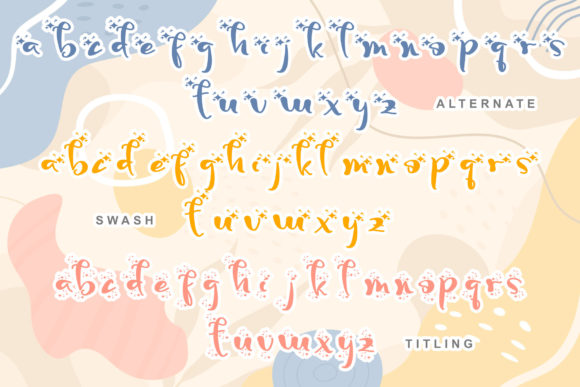 abcdefghijklmnopqrs
tuvwxyz
ALTERNATE
abcdefghijklmnopqrs
SWASH
tuvwxyz
abcdefghijklmnopqrs
tuvwxyz
TITLING